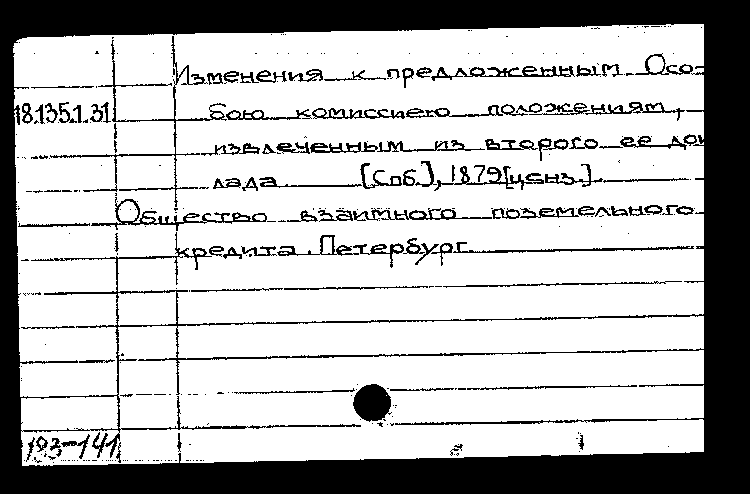 Изменения к предложенным Осо-
18.135.1.31 бою комиссиею положениям,
извлеченным из второго ее док
лада [Спб.], 1879[ценз.].
Общество взаимного поземельного
кредита. Петербург.
193-141